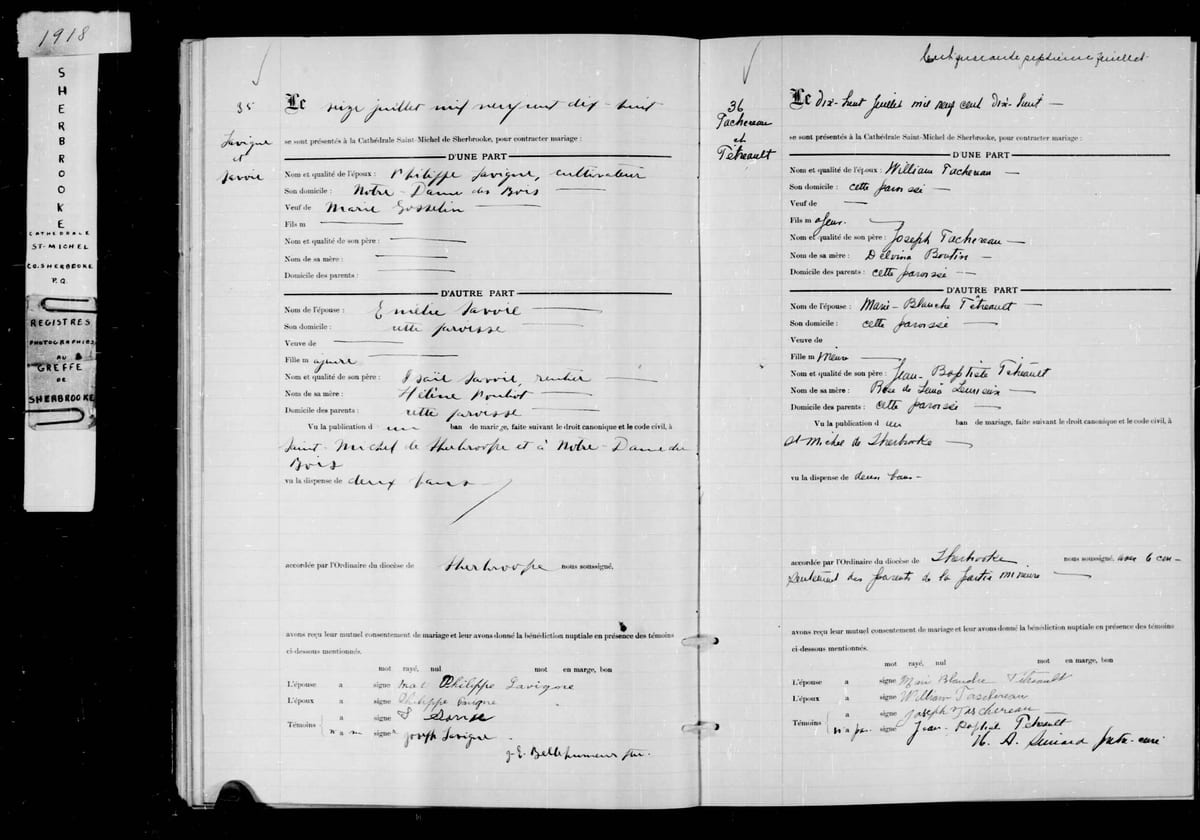 1918
SHERBROOKE
CATHEDRALE
ST-MICHEL
CO. SHERBROOKE
P.Q.
REGISTRES
PHOTOGRAPHIES
AU
GREFFE
DE
SHERBROOKE
35
Lavigne
et
Savoie
Le seize juillet mil neuf cent dix-huit
se sont présentés à la Cathédrale Saint-Michel de Sherbrooke, pour contracter mariage :
D'UNE PART
Nom et qualité de l'époux : Philippe Lavigne, cultivateur
Son domicile : Notre-Dame des Bois
Veuf de Marie Gosselin
Fils m
Nom et qualité de son père :
Nom de sa mère :
Domicile des parents :
D'AUTRE PART
Nom de l'épouse : Emélie Savoie
Son domicile : cette paroisse
Veuve de
Fille majeure
Nom et qualité de son père : Isaïe Savoie, rentier
Nom de sa mère : Hélène Pouliot
Domicile des parents : cette paroisse
Vu la publication d un ban de mariage, faite suivant le droit canonique et le code civil, à
Saint-Michel de Sherbrooke et à Notre-Dame des
Bois
vu la dispense de deux bans
accordée par l'Ordinaire du diocèse de Sherbrooke nous soussigné,
avons reçu leur mutuel consentement de mariage et leur avons donné la bénédiction nuptiale en présence des témoins
ci-dessous mentionnés.
mot rayé, nul mot en marge, bon
L'épouse a signé Philippe Lavigne
L'époux a signé Philippe
Témoins a signé
signé Joseph Lavigne
36
Tachereau
et
Tétreault
Cent quarante septième feuillet
Le dix-huit juillet mil neuf cent dix-huit
se sont présentés à la Cathédrale Saint-Michel de Sherbrooke, pour contracter mariage :
D'UNE PART
Nom et qualité de l'époux : William Tachereau
Son domicile : cette paroisse
Veuf de
Fils majeur
Nom et qualité de son père : Joseph Tachereau
Nom de sa mère : Delvina Boutin
Domicile des parents : cette paroisse
D'AUTRE PART
Nom de l'épouse : Marie-Blanche Tétreault
Son domicile : cette paroisse
Veuve de
Fille mineure
Nom et qualité de son père : Jean-Baptiste Tétreault
Nom de sa mère : Rose de Lima
Domicile des parents : cette paroisse
Vu la publication d un ban de mariage, faite suivant le droit canonique et le code civil, à
St Michel de Sherbrooke
vu la dispense de deux bans
accordée par l'Ordinaire du diocèse de Sherbrooke nous soussigné, avec le con-
sentement des parents de la partie mineure
avons reçu leur mutuel consentement de mariage et leur avons donné la bénédiction nuptiale en présence des témoins
ci-dessous mentionnés.
mot rayé, nul mot en marge, bon
L'épouse a signé Marie Blanche Tétreault
L'époux a signé William Taschereau
Témoins a signé Joseph Taschereau
n'a pas signé Jean Baptiste Tétreault
H. A. Simard ptre-curé